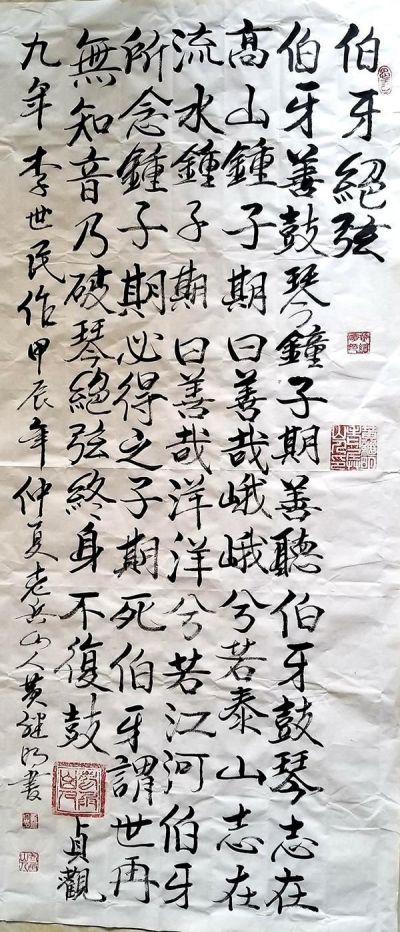 伯牙絕弦
伯牙善鼓琴鐘子期善聽伯牙鼓琴志在
高山鍾子期曰善哉峨峨兮若泰山志在
流水鍾子期曰善哉洋洋兮若江河伯牙
所念鍾子期必得之子期死伯牙謂世再
無知音乃破琴絕弦終身不復鼓貞觀
九年李世民作甲辰年仲夏老兵山人黃繼明書